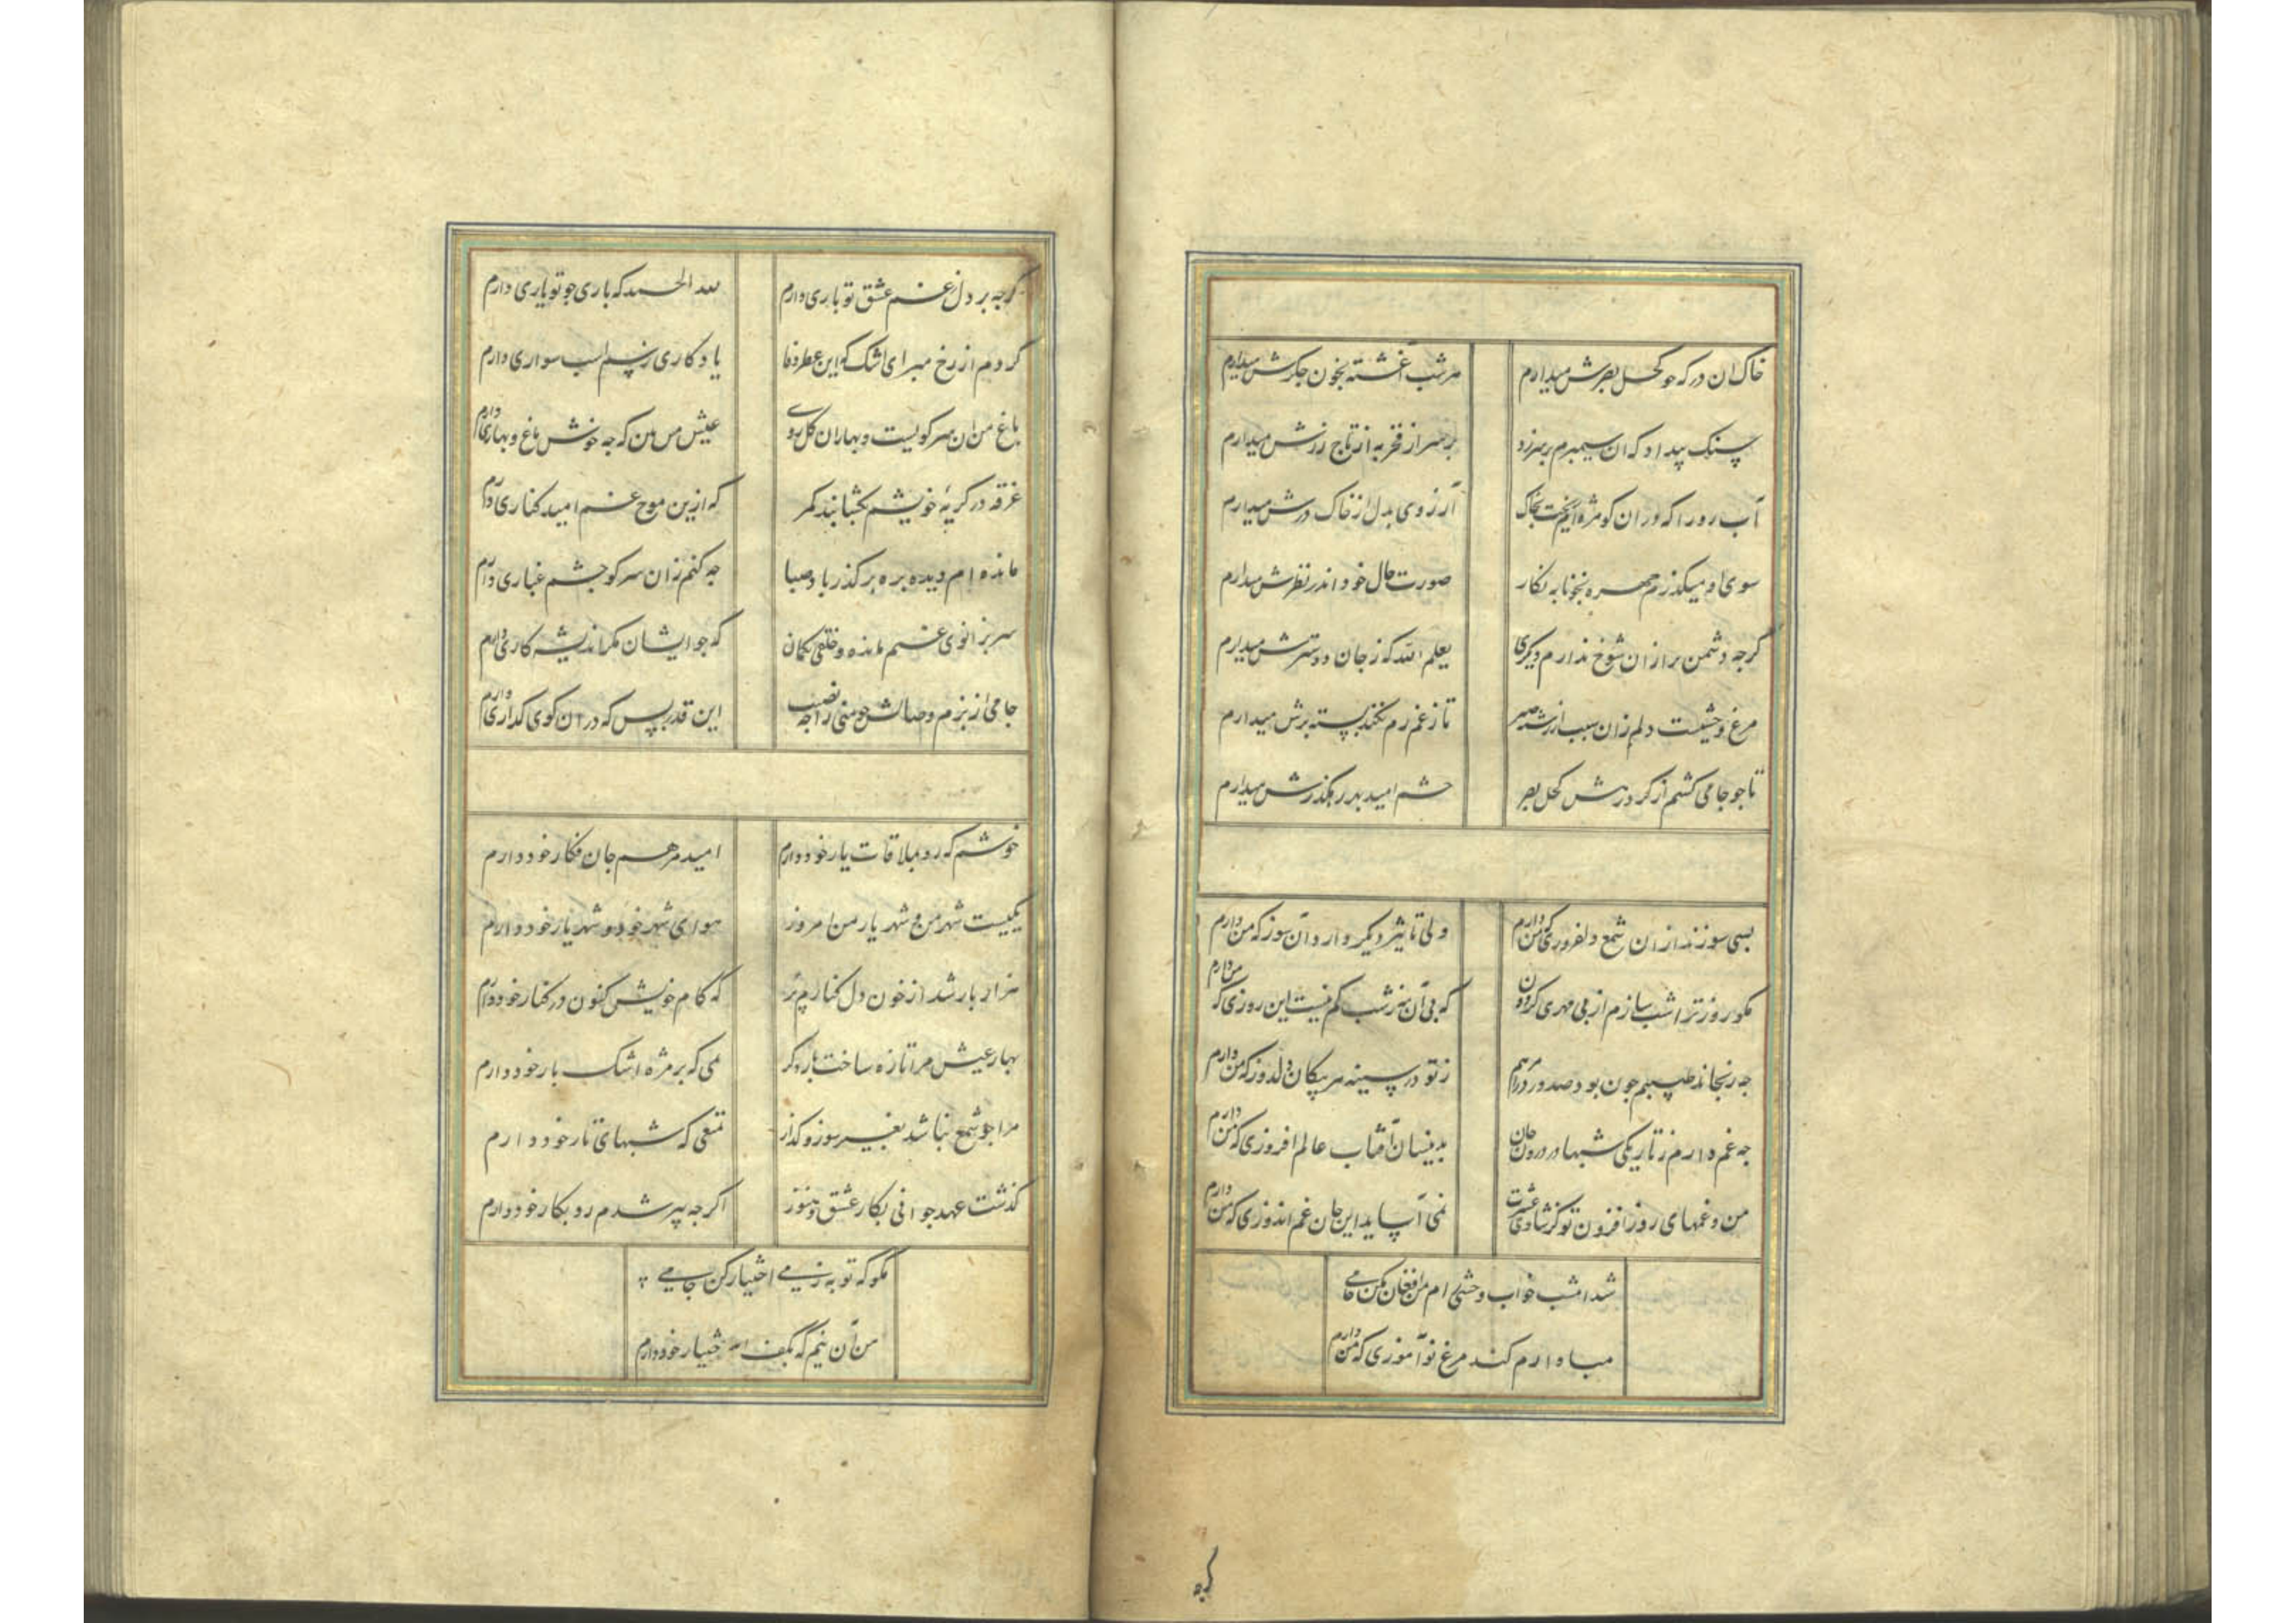 خاک ان درکه جو کحل بصرش میدارم
هرشب آغشته بخون جکرش میدارم
سنک بیداد که ان سیمبرم بر سر زد
بر سر از فخر به از تاج زرش میدارم
آب رو را که در ان کو مژه ام ریخت بخاک
آرزوی بدل از خاک درش میدارم
سوی او میکذرم چهره بخونابه نکار
صورت حال خود اندر نظرش میدارم
کرجه دشمن تر ازان شوخ ندارم دیکری
یعلم الله که ز جان دوسترش میدارم
مرغ وحشیست دلم زان سبب از رشته صبر
تا ز غم رم نکند بسته پرش میدارم
تا جو جامی کشم از کرد رهش کحل بصر
جشم امید بدر رهکذرش میدارم
بسی سوزند ازان شمع دلفروزی که من دارم
ولی تاثیر دیکر دارد آن سوز که من دارم
مکو روز ترا شب سازم از بی مهری کردون
که بی آن مه ز شب کم نیست این روزی که من دارم
جه رنجاند طبیبم جون بود صد درد را مرهم
ز تو در سینه هر پیکان دلدوز که من دارم
جه غم دارم ز تاریکی شبها در درون جان
بدینسان آفتاب عالم افروزی که من دارم
من و غمهای روز افزون تو کز شادی عشرت
نمی آساید این جان غم اندوزی که من دارم
شد امشب خواب وحشی رام من افغان مکن جامی
مبادا رم کند مرغ نوآموزی که من دارم
کرجه
کرجه بر دل غم عشق تو باری دارم
لله الحمد که باری جو تو یاری دارم
کردم از رخ مبر ای اشک که این عطر وفا
یادکاری ز سم اسب سواری دارم
باغ من ان سر کویست و بهاران کل روی
عیش من بین که جه خوش باغ و بهاری دارم
غرقه در کریهٔ خویشم بکشایند کمر
که ازین موج غم امید کناری دارم
مانده ام دیده بره بر کذر باد صبا
جه کنم زان سر کو جشم غباری دارم
سر بزانوی غم مانده و خلقی بکمان
که جو ایشان مکر اندیشه کاری دارم
جامی از بزم وصالش جو منی را جه نصیب
این قدر بس که در ان کوی کذاری دارم
خوشم که رو بملاقات یار خود دارم
امید مرهم جان فکار خود دارم
یکیست شهر من و شهریار من امروز
هوای شهر خود و شهریار خود دارم
هزار بار شد از خون دل کنارم پر
که کام خویش کنون در کنار خود دارم
بهار عیش مرا تازه ساخت بار دکر
نمی که بر مژه اشک بار خود دارم
مرا جو شمع نباشد بغیر سوز و کداز
تمتعی که شبهای تار خود دارم
کذشت عهد جوانی بکار عشق و هنوز
اکرجه پیر شدم رو بکار خود دارم
مکو که توبه ز می اختیار کن جامی
من آن نیم که بکف اختیار خود دارم